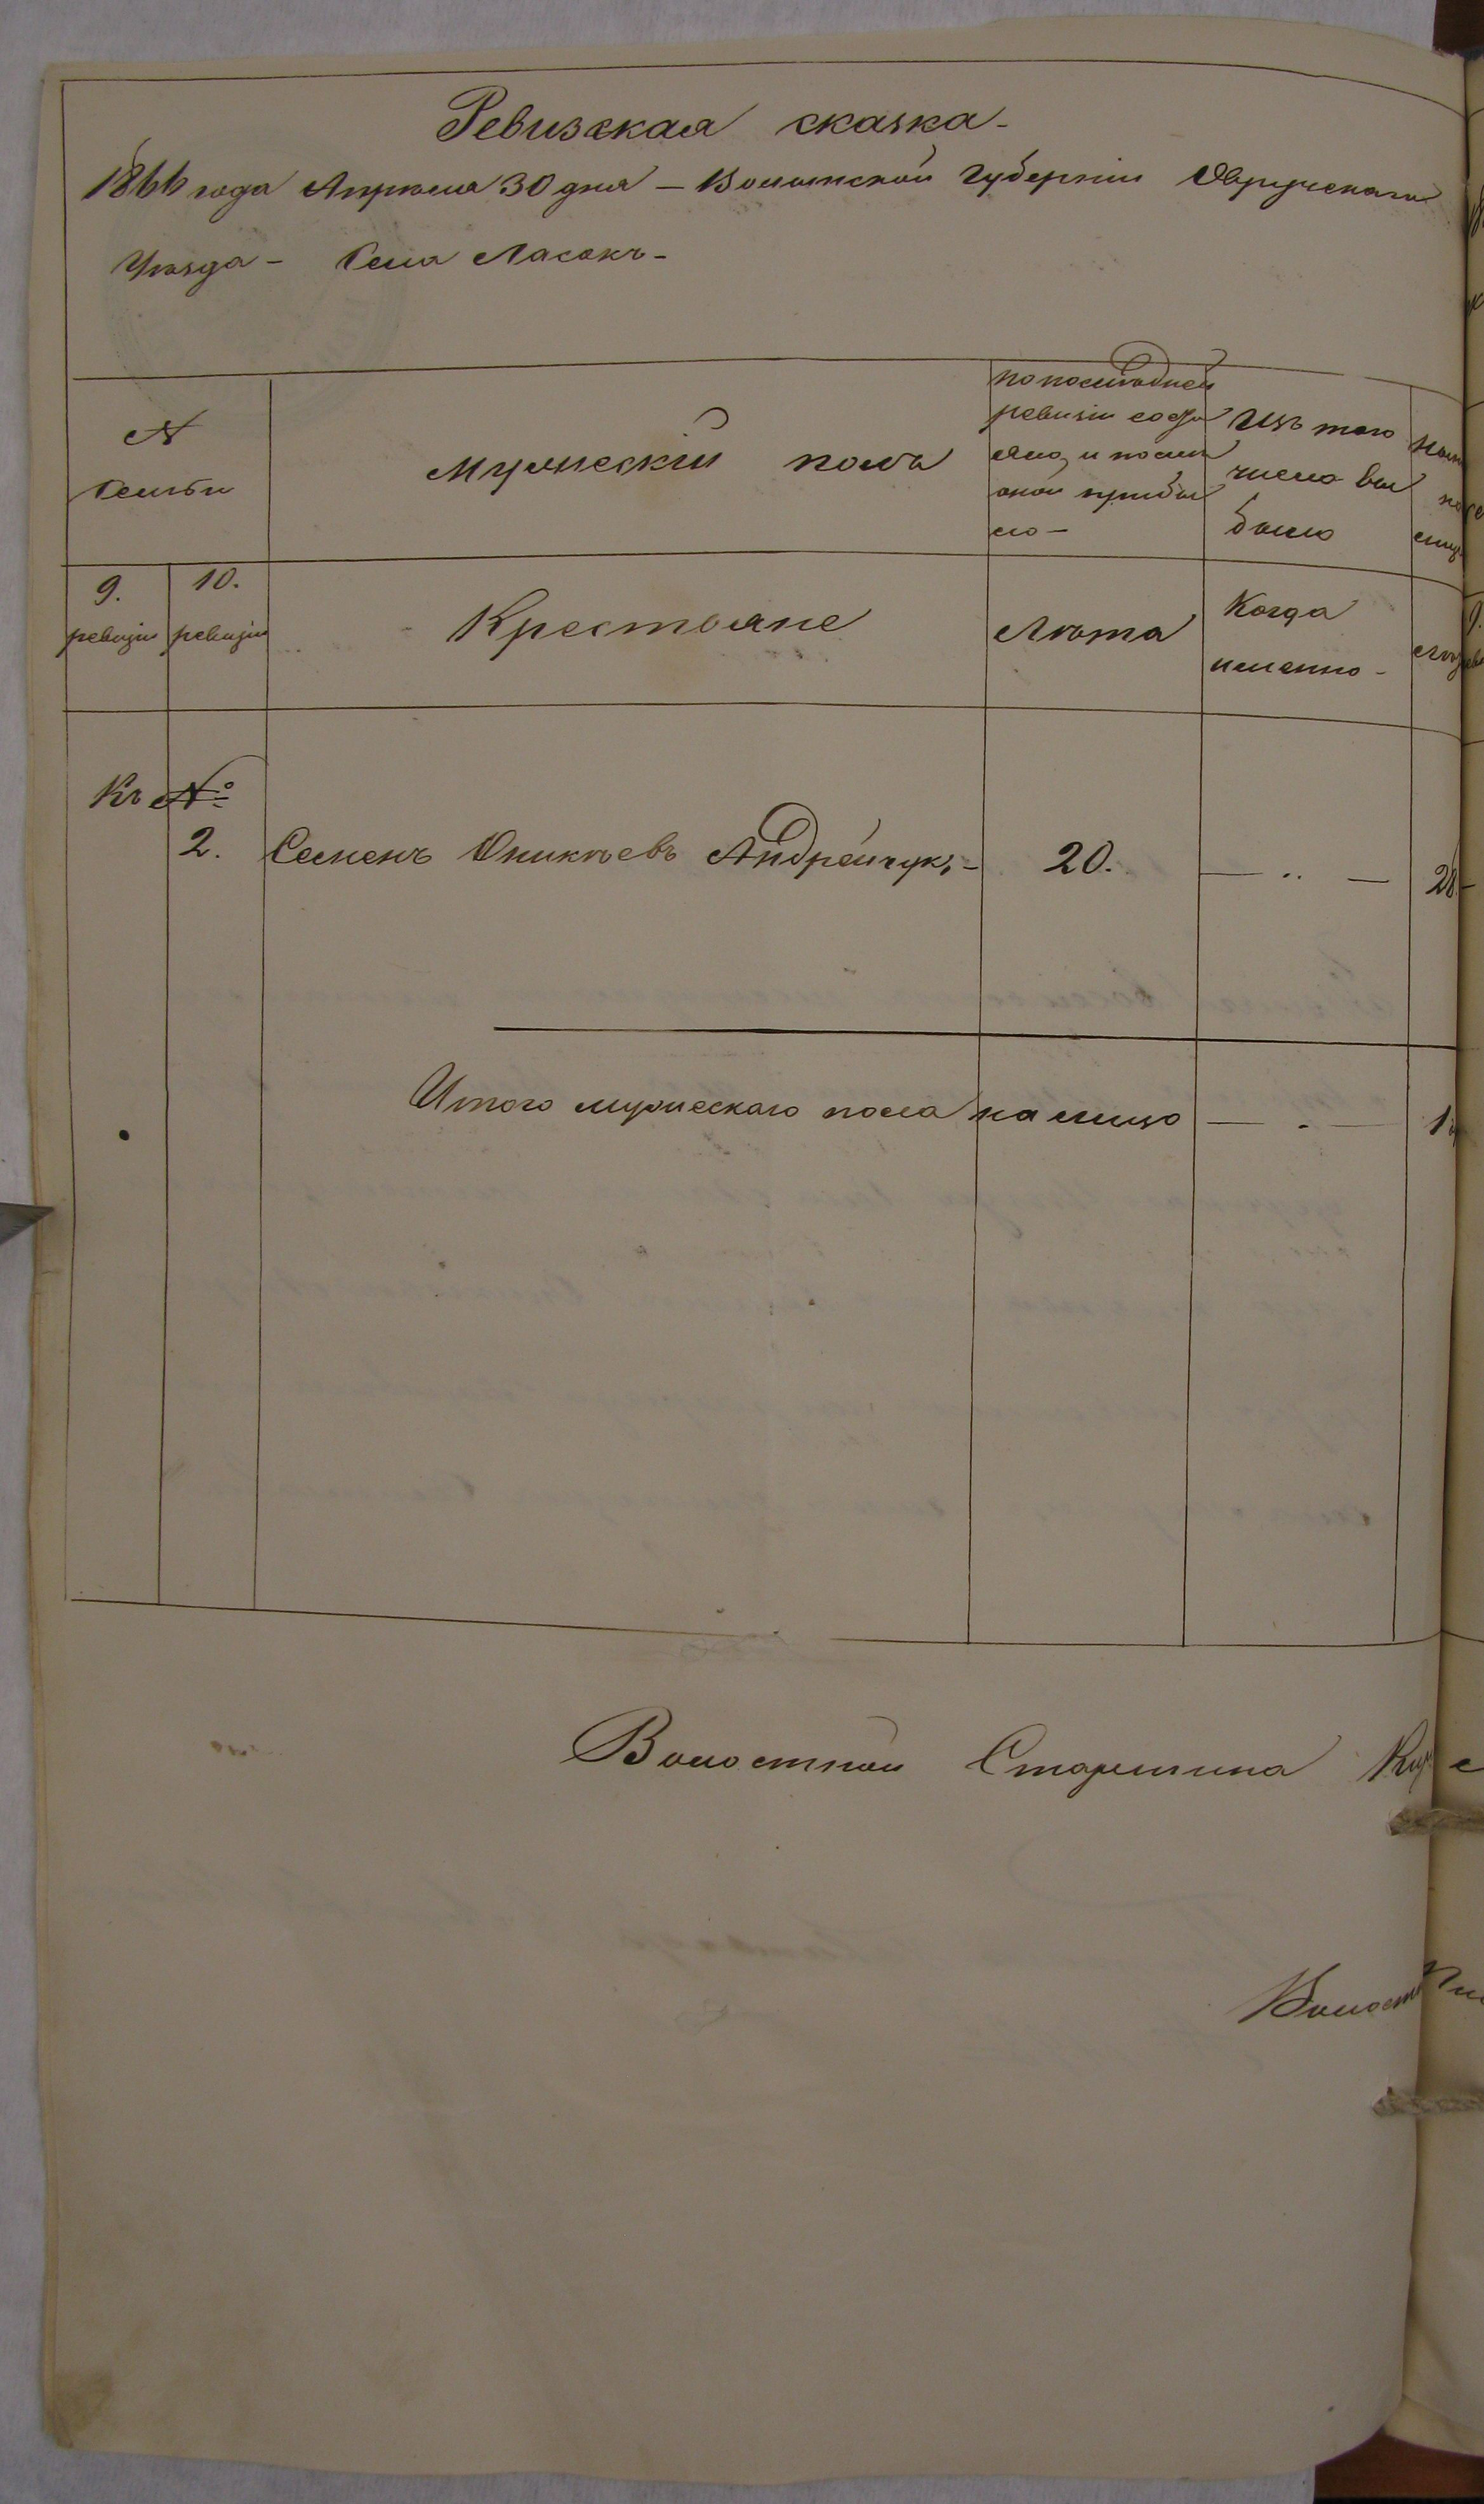 Ревизская сказка -
1866 года Апрѣля 30 дня - Волынской Губерніи Овручскаго
Уѣзда - Села Ласокъ -
N
Семьи
Мужескій полъ
по послѣдней
ревизіи состо
яло, и послѣ
оной прибы
ло -
Изъ того
числа вы
было
9.
ревизіи
10.
ревизіи
Крестьяне
Лѣта
Когда
именно -
Къ №
2. Семенъ Оникѣевъ Андрейчукъ - 20. — " — 28
Итого мужескаго пола на лицо — " — 1
Волостной Старшина
Волост